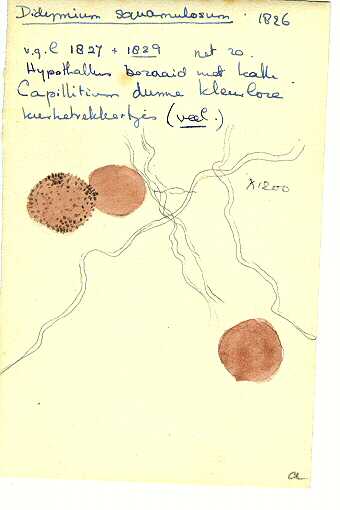 Didymium squamulosum. 1826
v.g.l 1827 + 1829 net zo.
Hypothallus bezaaid met kalk
Capillitium dunne kleurloze
kurketrekkertjes (veel.)
X1200